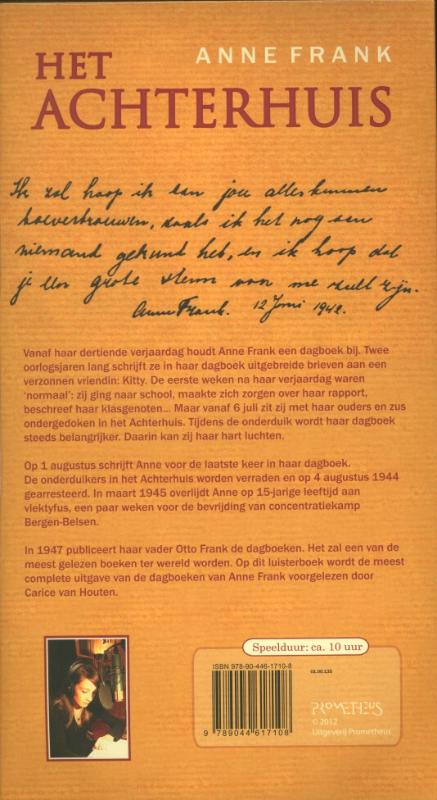 HET
ANNE FRANK
ACHTERHUIS
Ik zal hoop ik aan jou alles kunnen
toevertrouwen, zoals ik het nog aan
niemand gekund heb, en ik hoop dat
je een grote steun voor me zult zijn.
Anne Frank. 12 Juni 1942.
Vanaf haar dertiende verjaardag houdt Anne Frank een dagboek bij. Twee
oorlogsjaren lang schrijft ze in haar dagboek uitgebreide brieven aan een
verzonnen vriendin: Kitty. De eerste weken na haar verjaardag waren
'normaal': zij ging naar school, maakte zich zorgen over haar rapport,
beschreef haar klasgenoten... Maar vanaf 6 juli zit zij met haar ouders en zus
ondergedoken in het Achterhuis. Tijdens de onderduik wordt haar dagboek
steeds belangrijker. Daarin kan zij haar hart luchten.
Op 1 augustus schrijft Anne voor de laatste keer in haar dagboek.
De onderduikers in het Achterhuis worden verraden en op 4 augustus 1944
gearresteerd. In maart 1945 overlijdt Anne op 15-jarige leeftijd aan
vlektyfus, een paar weken voor de bevrijding van concentratiekamp
Bergen-Belsen.
In 1947 publiceert haar vader Otto Frank de dagboeken. Het zal een van de
meest gelezen boeken ter wereld worden. Op dit luisterboek wordt de meest
complete uitgave van de dagboeken van Anne Frank voorgelezen door
Carice van Houten.
Speelduur: ca. 10 uur
ISBN 978-90-446-1710-8
9 789044 617108
PROMETHEUS
© 2012
Uitgeverij Prometheus